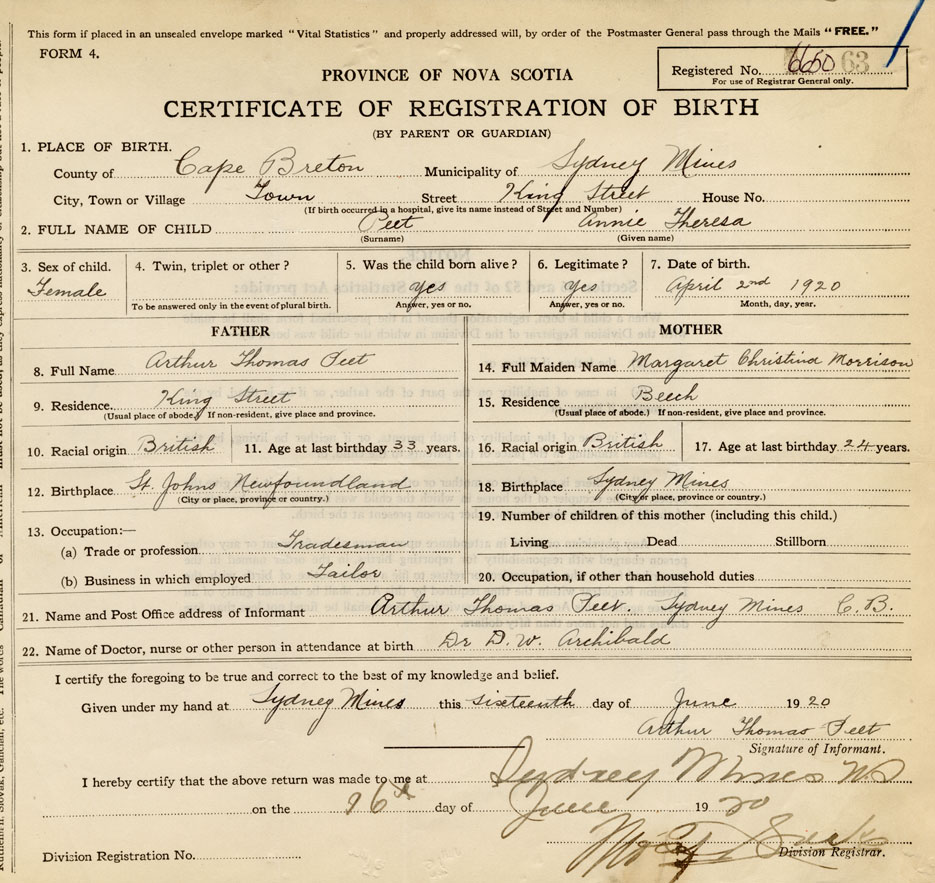 This form if placed in an unsealed envelope marked "Vital Statistics" and properly addressed will, by order of the Postmaster General pass through the Mails "FREE."
FORM 4.
Registered No. 6650 63
For use of Registrar General only.
PROVINCE OF NOVA SCOTIA
CERTIFICATE OF REGISTRATION OF BIRTH
(BY PARENT OR GUARDIAN)
1. PLACE OF BIRTH.
County of Cape Breton Municipality of Sydney Mines
City, Town or Village Town Street King Street House No.
(If birth occurred in a hospital, give its name instead of Street and Number)
2. FULL NAME OF CHILD Peet Annie Theresa
(Surname) (Given name)
3. Sex of child. 4. Twin, triplet or other? 5. Was the child born alive? 6. Legitimate? 7. Date of birth.
Female yes yes April 2nd 1920
To be answered only in the event of plural birth. Answer, yes or no. Answer, yes or no. Month, day, year.
FATHER MOTHER
8. Full Name Arthur Thomas Peet 14. Full Maiden Name Margaret Christina Morrison
9. Residence King Street 15. Residence Beech
(Usual place of abode. If non-resident, give place and province. (Usual place of abode.) If non-resident, give place and province.
10. Racial origin British 11. Age at last birthday 33 years. 16. Racial origin British 17. Age at last birthday 24 years.
12. Birthplace St. Johns Newfoundland 18. Birthplace Sydney Mines
(City or place, province or country.) (City or place, province or country.)
13. Occupation:— 19. Number of children of this mother (including this child.)
(a) Trade or profession Tradesman Living Dead Stillborn
(b) Business in which employed Tailor 20. Occupation, if other than household duties
21. Name and Post Office address of Informant Arthur Thomas Peet. Sydney Mines C. B.
22. Name of Doctor, nurse or other person in attendance at birth Dr D. W. Archibald
I certify the foregoing to be true and correct to the best of my knowledge and belief.
Given under my hand at Sydney Mines this sixteenth day of June 1920
Arthur Thomas Peet
Signature of Informant.
I hereby certify that the above return was made to me at Sydney Mines NS
on the 16th day of June 1920
Division Registration No. Division Registrar.